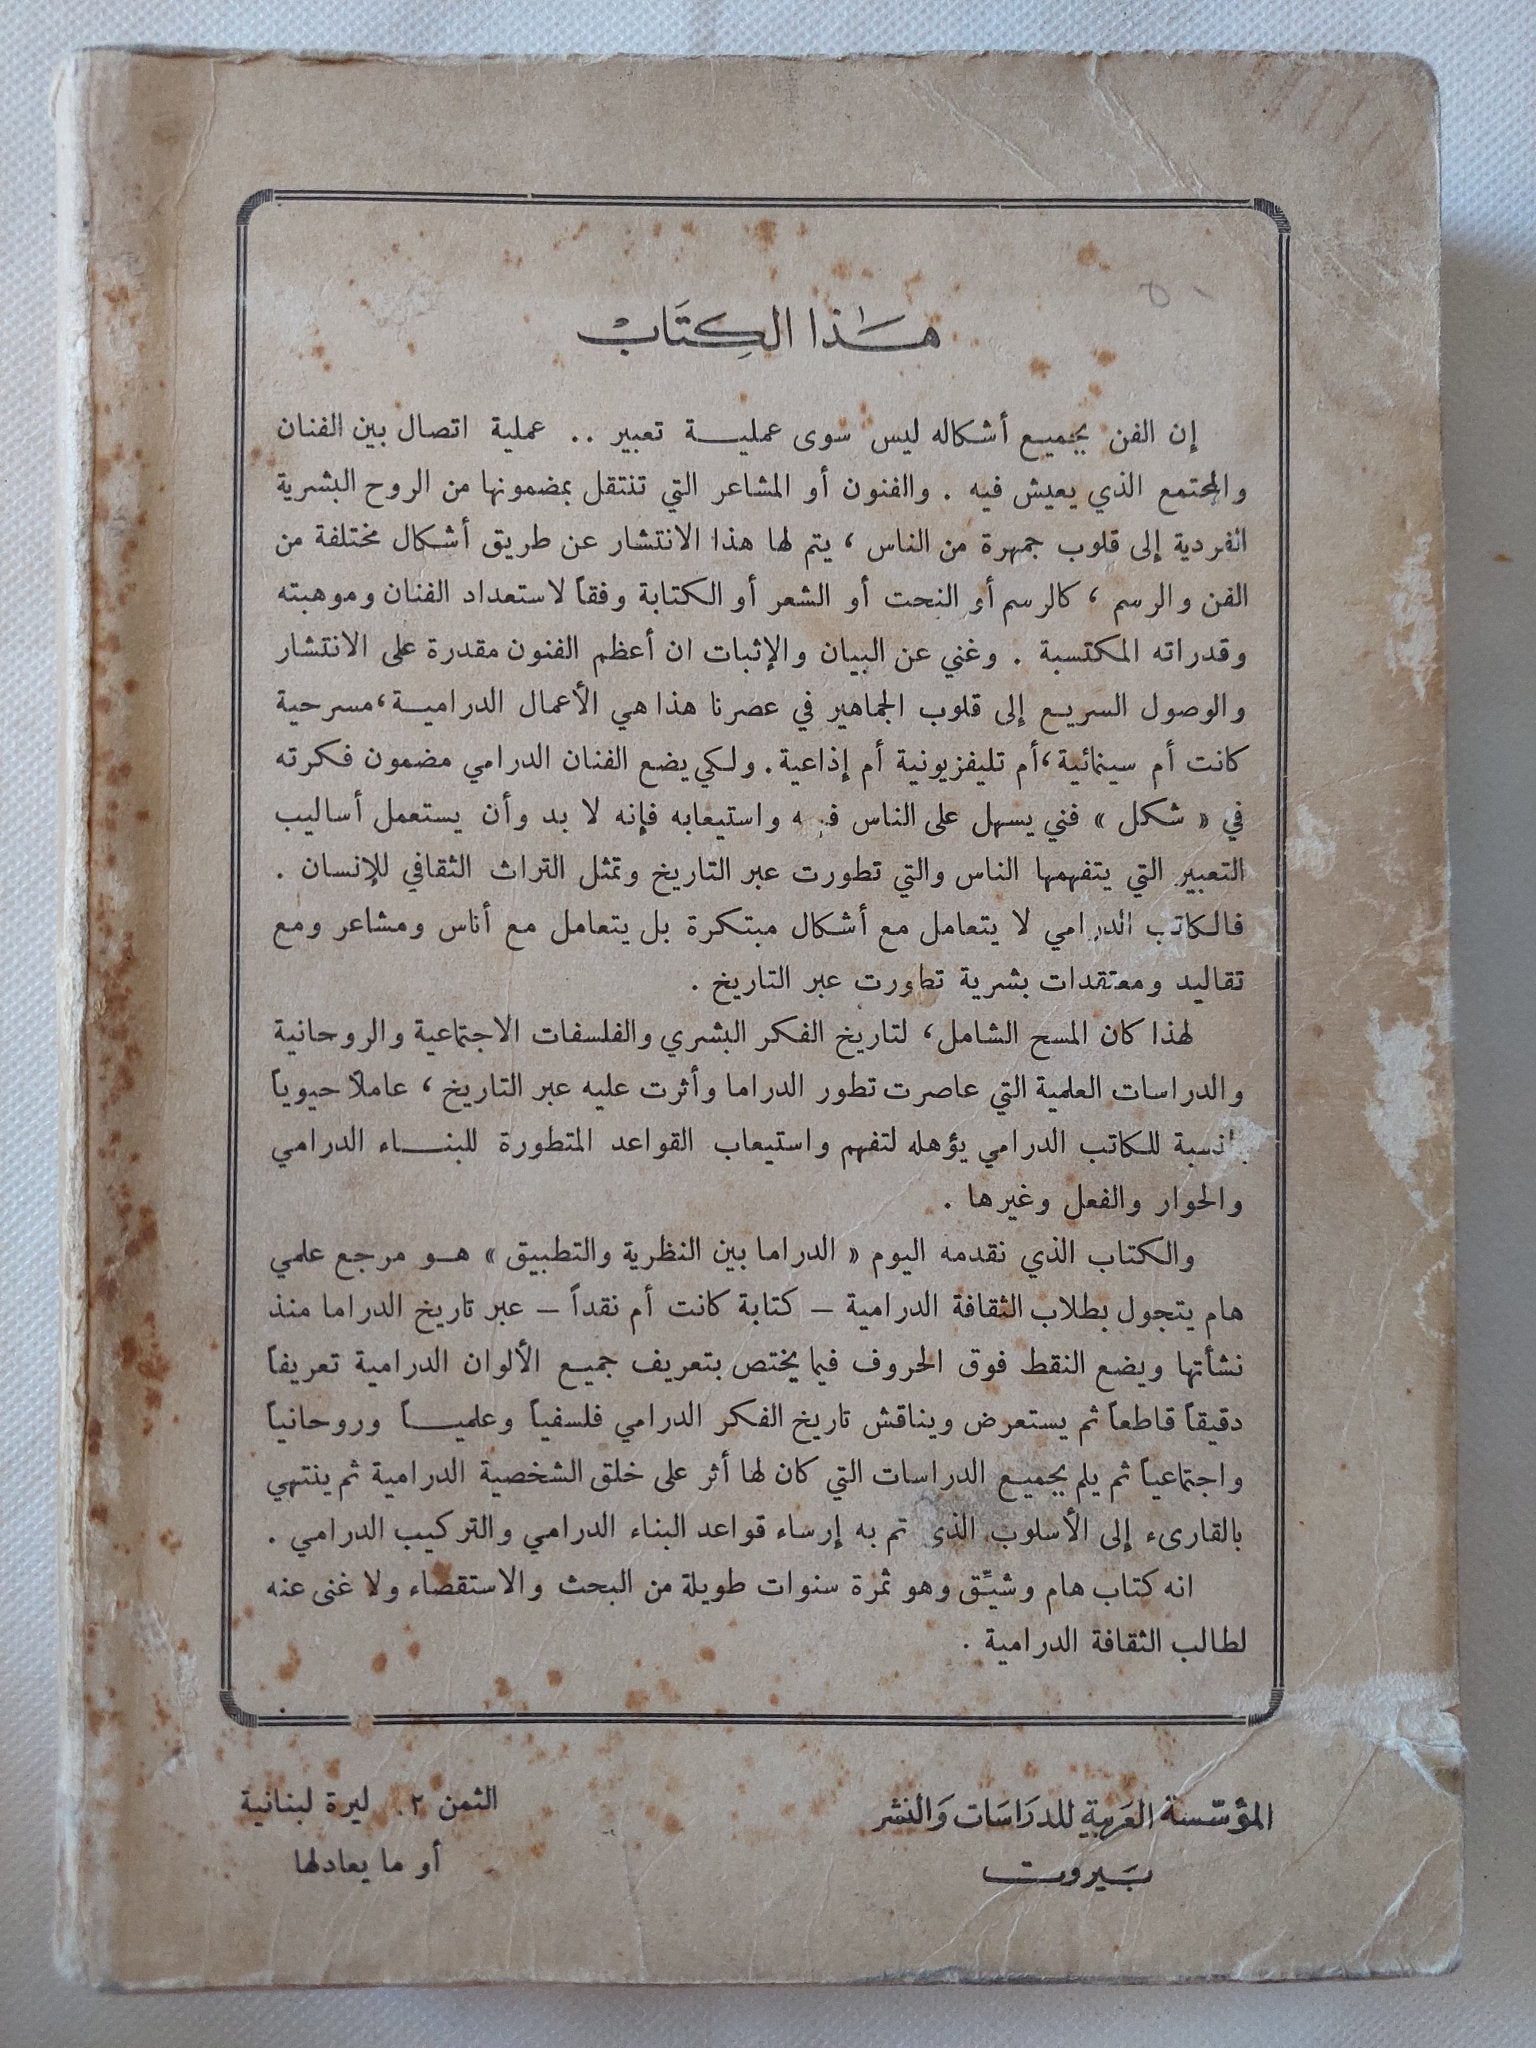 هٰذا الكِتَابْ
إن الفن بجميع أشكاله ليس سوى عمليــة تعبير .. عملية اتصال بين الفنان
والمجتمع الذي يعيش فيه . والفنون أو المشاعر التي تنتقل بمضمونها من الروح البشرية
الفردية إلى قلوب جمهرة من الناس ، يتم لها هذا الانتشار عن طريق أشكال مختلفة من
الفن والرسم ، كالرسم أو النحت أو الشعر أو الكتابة وفقاً لاستعداد الفنان وموهبته
وقدراته المكتسبة . وغني عن البيان والإثبات ان أعظم الفنون مقدرة على الانتشار
والوصول السريع إلى قلوب الجماهير في عصرنا هذا هي الأعمال الدراميــة،مسرحية
كانت أم سينمائية،أم تليفزيونية أم إذاعية. ولكي يضع الفنان الدرامي مضمون فكرته
في « شكل » فني يسهل على الناس واستيعابه فإنه لا بد وأن يستعمل أساليب
التعبير التي يتفهمها الناس والتي تطورت عبر التاريخ وتمثل التراث الثقافي للإنسان .
فالكاتب الدرامي لا يتعامل مع أشكال مبتكرة بل يتعامل مع أناس ومشاعر ومع
تقاليد ومعتقدات بشرية تطورت عبر التاريخ .
لهذا كان المسح الشامل، لتاريخ الفكر البشري والفلسفات الاجتماعية والروحانية
والدراسات العلمية التي عاصرت تطور الدراما وأثرت عليه عبر التاريخ ، عاملاً حيوياً
بالنسبة للكاتب الدرامي يؤهله لتفهم واستيعاب القواعد المتطورة للبنــاء الدرامي
والحوار والفعل وغيرها .
والكتاب الذي نقدمه اليوم « الدراما بين النظرية والتطبيق » هــو مرجع علمي
هام يتجول بطلاب الثقافة الدرامية – كتابة كانت أم نقداً – عبر تاريخ الدراما منذ
نشأتها ويضع النقط فوق الحروف فيما يختص بتعريف جميع الألوان الدرامية تعريفاً
دقيقاً قاطعاً ثم يستعرض ويناقش تاريخ الفكر الدرامي فلسفياً وعلميــاً وروحانياً
واجتماعياً ثم يلم بجميع الدراسات التي كان لها أثر على خلق الشخصية الدرامية ثم ينتهي
بالقارىء إلى الأسلوب الذي تم به إرساء قواعد البناء الدرامي والتركيب الدرامي .
انه كتاب هام وشيِّق وهو ثمرة سنوات طويلة من البحث والاستقصاء ولا غنى عنه
لطالب الثقافة الدرامية .
المؤسّسة العَربية للدرَاسَات وَالنشر
بَيروت
الثمن ٢٠ ليرة لبنانية
أو ما يعادلها